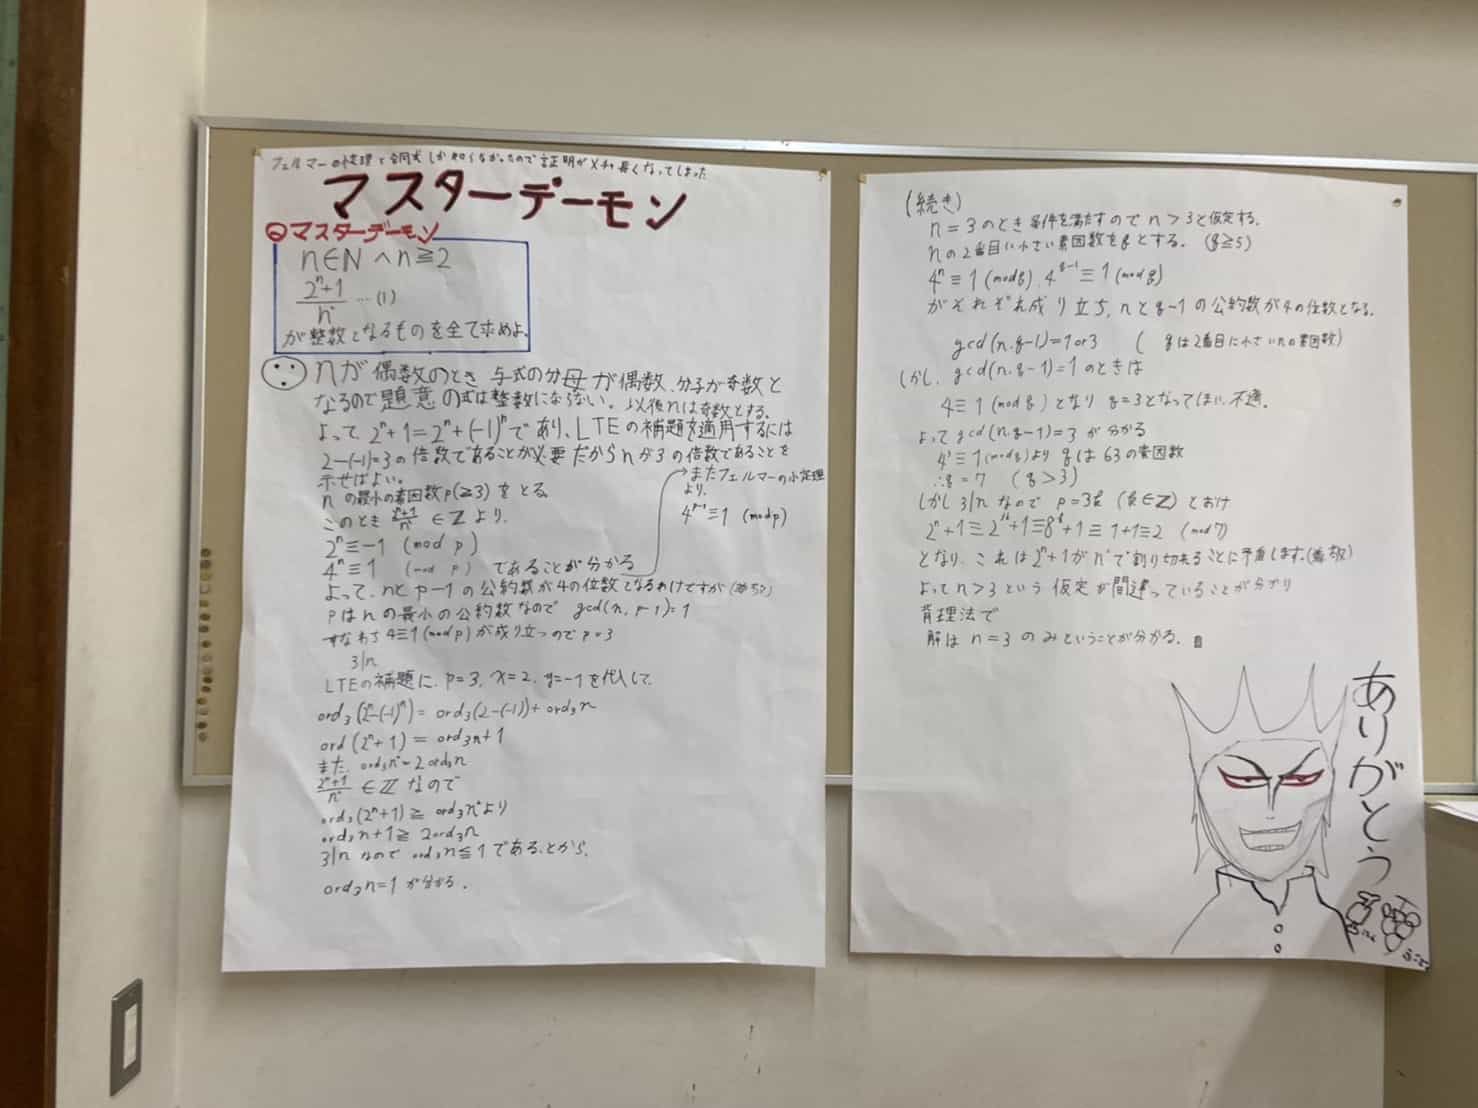 フェルマーの小定理と合同式しか知らなかったので証明がメチャ長くなってしまった
マスターデーモン
マスターデーモン
n∈N ∧ n≧2
2ⁿ+1/n² …(1)
が整数となるものを全て求めよ。
nが偶数のとき 与式の分母が偶数、分子が奇数と
なるので題意の式は整数にならない。以後nは奇数とする。
よって、2ⁿ+1=2ⁿ+(-1)ⁿであり、LTEの補題を適用するには
2-(-1)=3の倍数であることが必要だからnが3の倍数であることを
示せばよい。
nの最小の素因数p(≧3)をとる。
このとき 2ⁿ+1/n² ∈Zより、
2ⁿ≡-1 (mod p)
4ⁿ≡1 (mod p) であることが分かる
→またフェルマーの小定理
より、
4ᵖ⁻¹≡1 (mod p)
よって、nとp-1の公約数が4の位数となるわけですが
pはnの最小の公約数なので gcd(n, p-1)=1
すなわち 4≡1(mod p)が成り立つのでp=3
3|n
LTEの補題に、p=3, x=2, y=-1を代入して、
ord₃(2ⁿ-(-1)ⁿ)=ord₃(2-(-1))+ord₃n
ord(2ⁿ+1)=ord₃n+1
また、ord₃n²=2ord₃n
2ⁿ+1/n² ∈Z なので
ord₃(2ⁿ+1)≧ord₃n²より
ord₃n+1≧2ord₃n
3|nなので ord₃n≦1であることから、
ord₃n=1が分かる。
(続き)
n=3のとき条件を満たすのでn>3と仮定する。
nの2番目に小さい素因数をqとする。(q≧5)
4ⁿ≡1(mod q), 4^q-1≡1(mod q)
がそれぞれ成り立ち、nとq-1の公約数が4の位数となる。
gcd(n,q-1)=1or3 (qは2番目に小さいnの素因数)
しかし、gcd(n,q-1)=1のときは
4≡1(mod q)となり q=3となってしまい不適。
よってgcd(n,q-1)=3が分かる
4³≡1(mod q)より qは63の素因数
∴q=7 (q>3)
しかし3|nなので p=3k (k∈Z)とおけ
2ⁿ+1≡2³ᵏ+1≡8ᵏ+1≡1+1≡2 (mod7)
となり、これは2ⁿ+1がn²で割り切れることに矛盾します。
よってn>3という仮定が間違っていることが分かり
背理法で
解はn=3のみということが分かる。
ありがとう